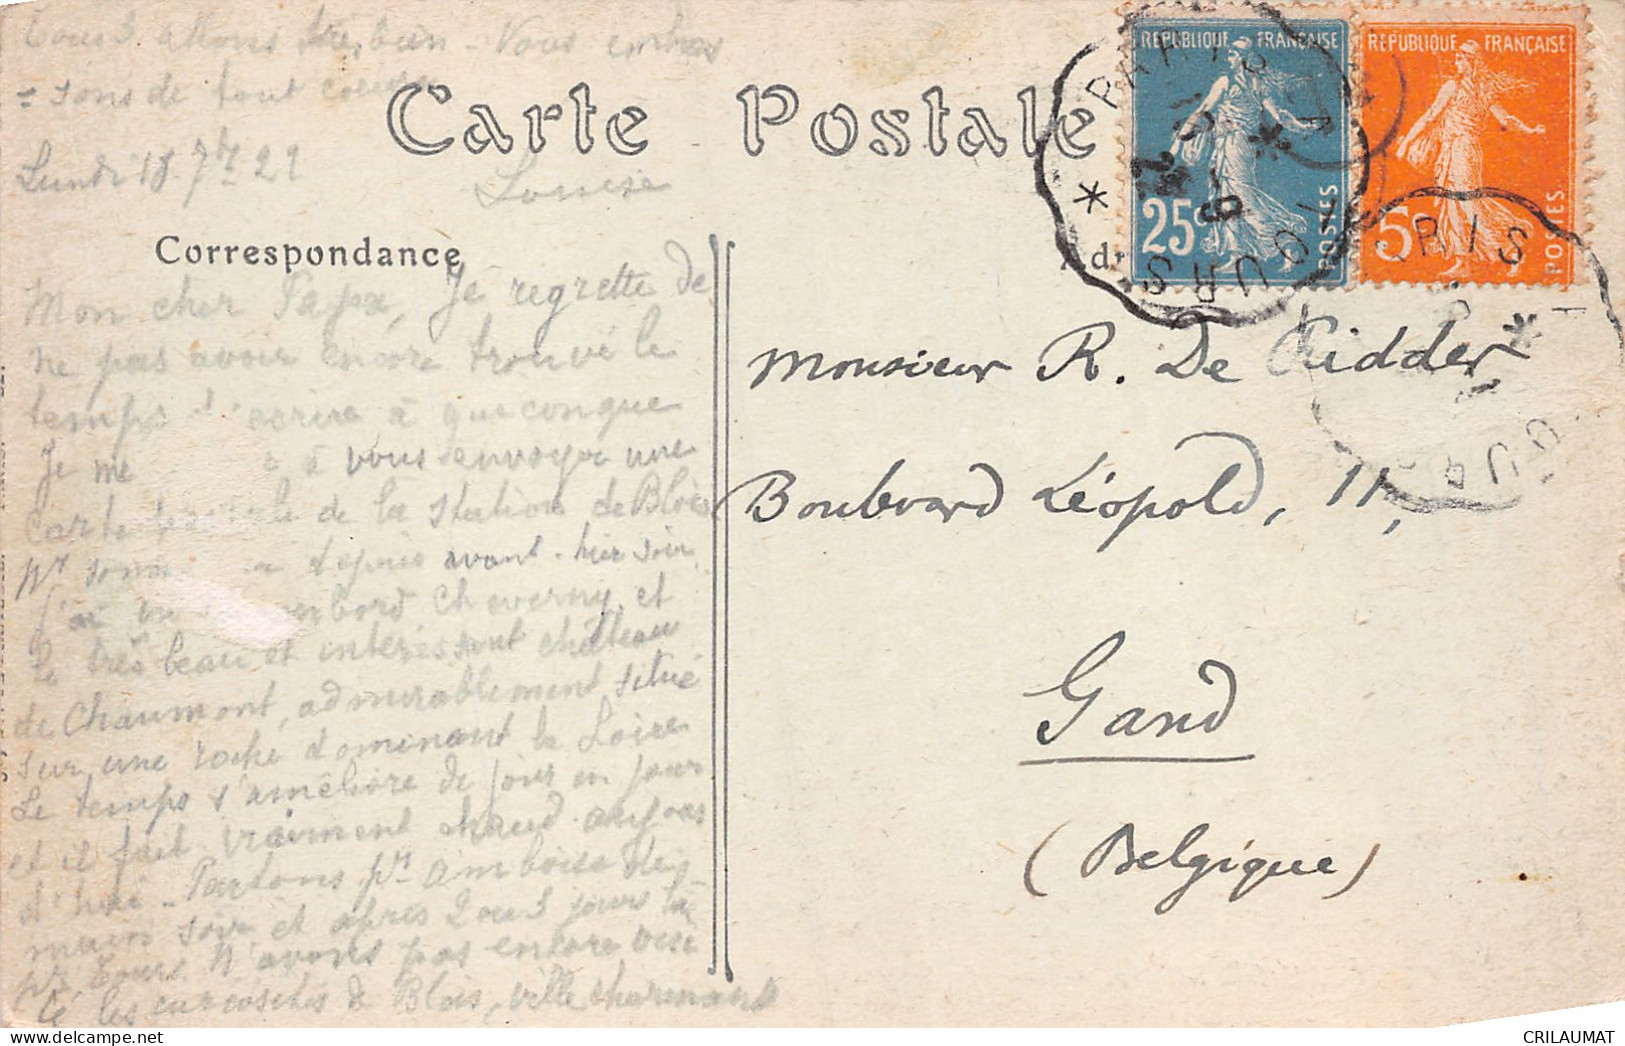 Tous 3 allons très bien - Vous embras
= sons de tout coeur
Lundi 18 7bre 22
Louise
Carte Postale
REPUBLIQUE FRANCAISE
25c
POSTES
REPUBLIQUE FRANÇAISE
5c
POSTES
PARIS
TOURS
Correspondance
Adr
Mon cher Papa, Je regrette de
ne pas avoir encore trouvé le
temps d'écrire à quiconque
Je me à vous envoyer une
Carte de la station de Blois
pr depuis avant-hier soir.
J'ai Cheverny et
le très beau et intéressant château
de Chaumont, admirablement situé
sur une roche dominant la Loire
Le temps s'améliore de jour en jour
et il fait vraiment chaud aujour
d'hui - Partons pr Amboise de
main soir et après 2 ou 3 jours là
pr Tours. N'avons pas encore visi
té les curiosités de Blois, ville charmante
Monsieur R. De Ridder
Boulevard Léopold, 11,
Gand
(Belgique)
CRILAUMAT